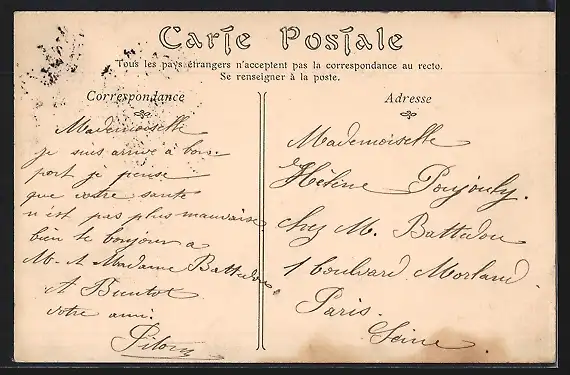 Carte Postale
Tous les pays étrangers n'acceptent pas la correspondance au recto.
Se renseigner à la poste.
Correspondance
Mademoiselle
je suis arrivé à bon
port je pense
que votre santé
n'est pas plus mauvaise
bien le bonjour a
M. A Madame Battedou
A Bientot
votre ami.
Adresse
Mademoiselle
Hélène Poujouly.
chez M. Battedou
1 boulvard Morland.
Paris.
Seine.